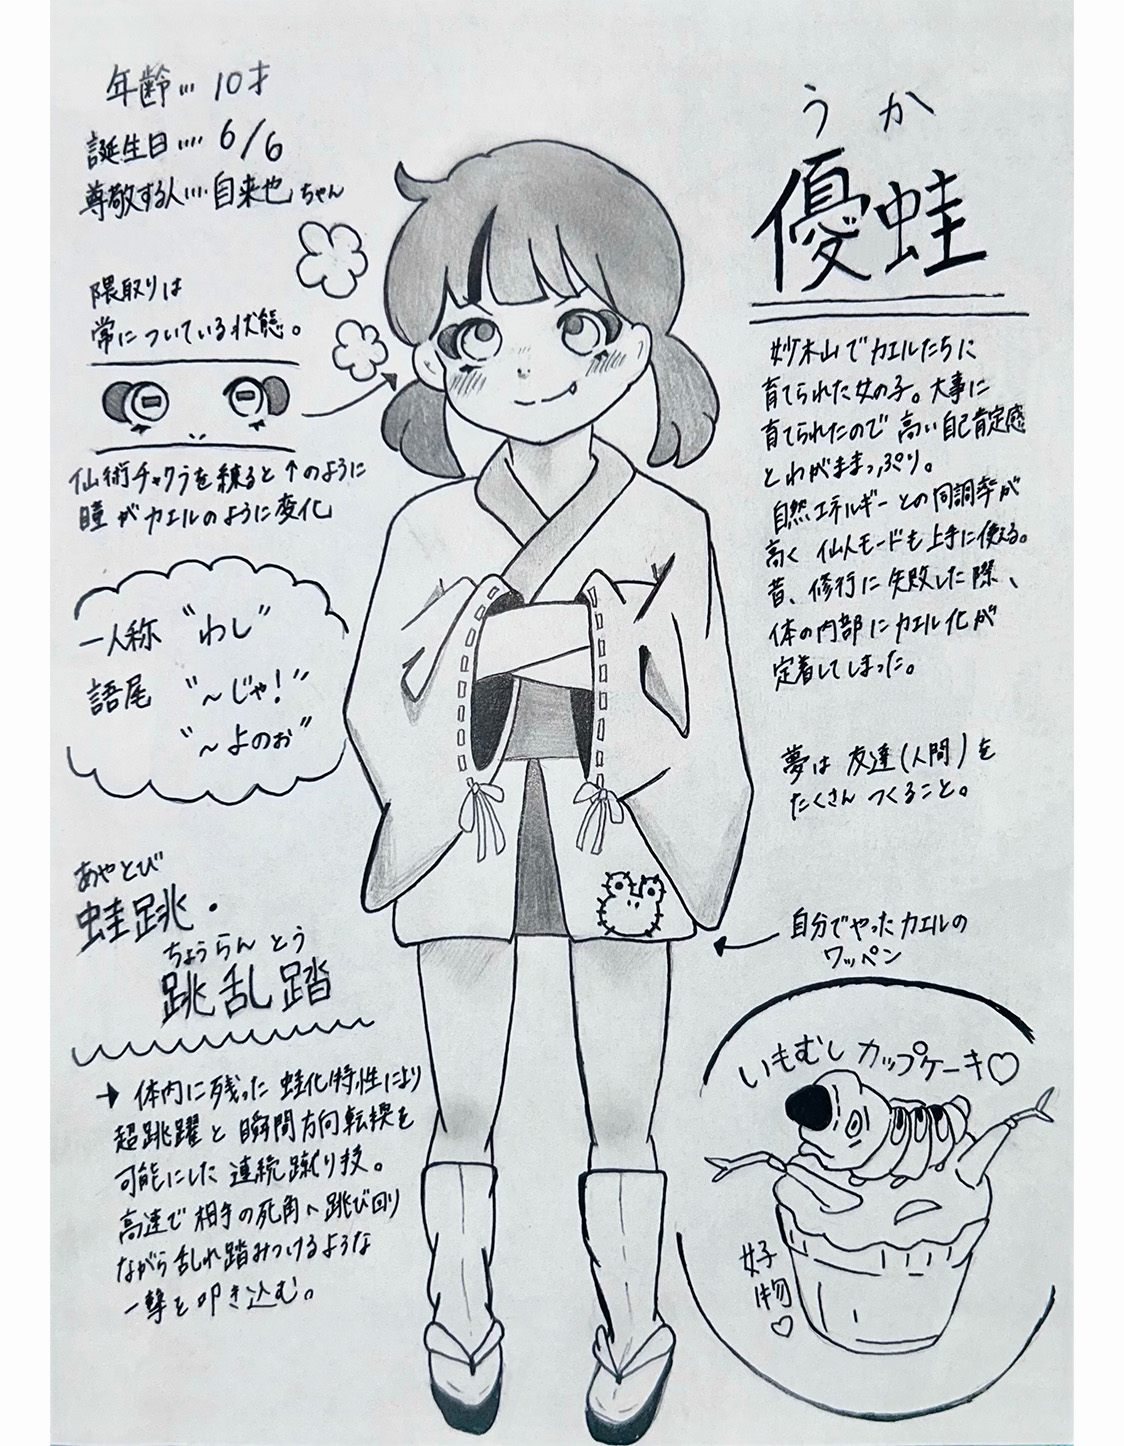 年齢… 10才
誕生日…. 6/6
尊敬する人…. 自来也ちゃん
うか
優蛙
隈取りは
常についている状態。
仙術チャクラを練ると↑のように
瞳がカエルのように変化
一人称 “わし”
語尾 “～じゃ!”
“～よのぉ”
あやとび
蛙跳・
ちょうらんとう
跳乱踏
→ 体内に残った蛙化特性により
超跳躍と瞬間方向転換を
可能にした連続蹴り技。
高速で相手の死角へ跳び回り
ながら乱れ踏みつけるような
一撃を叩き込む。
妙木山でカエルたちに
育てられた女の子。大事に
育てられたので高い自己肯定感
とわがままっぷり。
自然エネルギーとの同調率が
高く仙人モードも上手に使える。
昔、修行に失敗した際、
体の内部にカエル化が
定着してしまった。
夢は友達(人間)を
たくさんつくること。
自分でやったカエルの
ワッペン
いもむしカップケーキ♡
好物♡